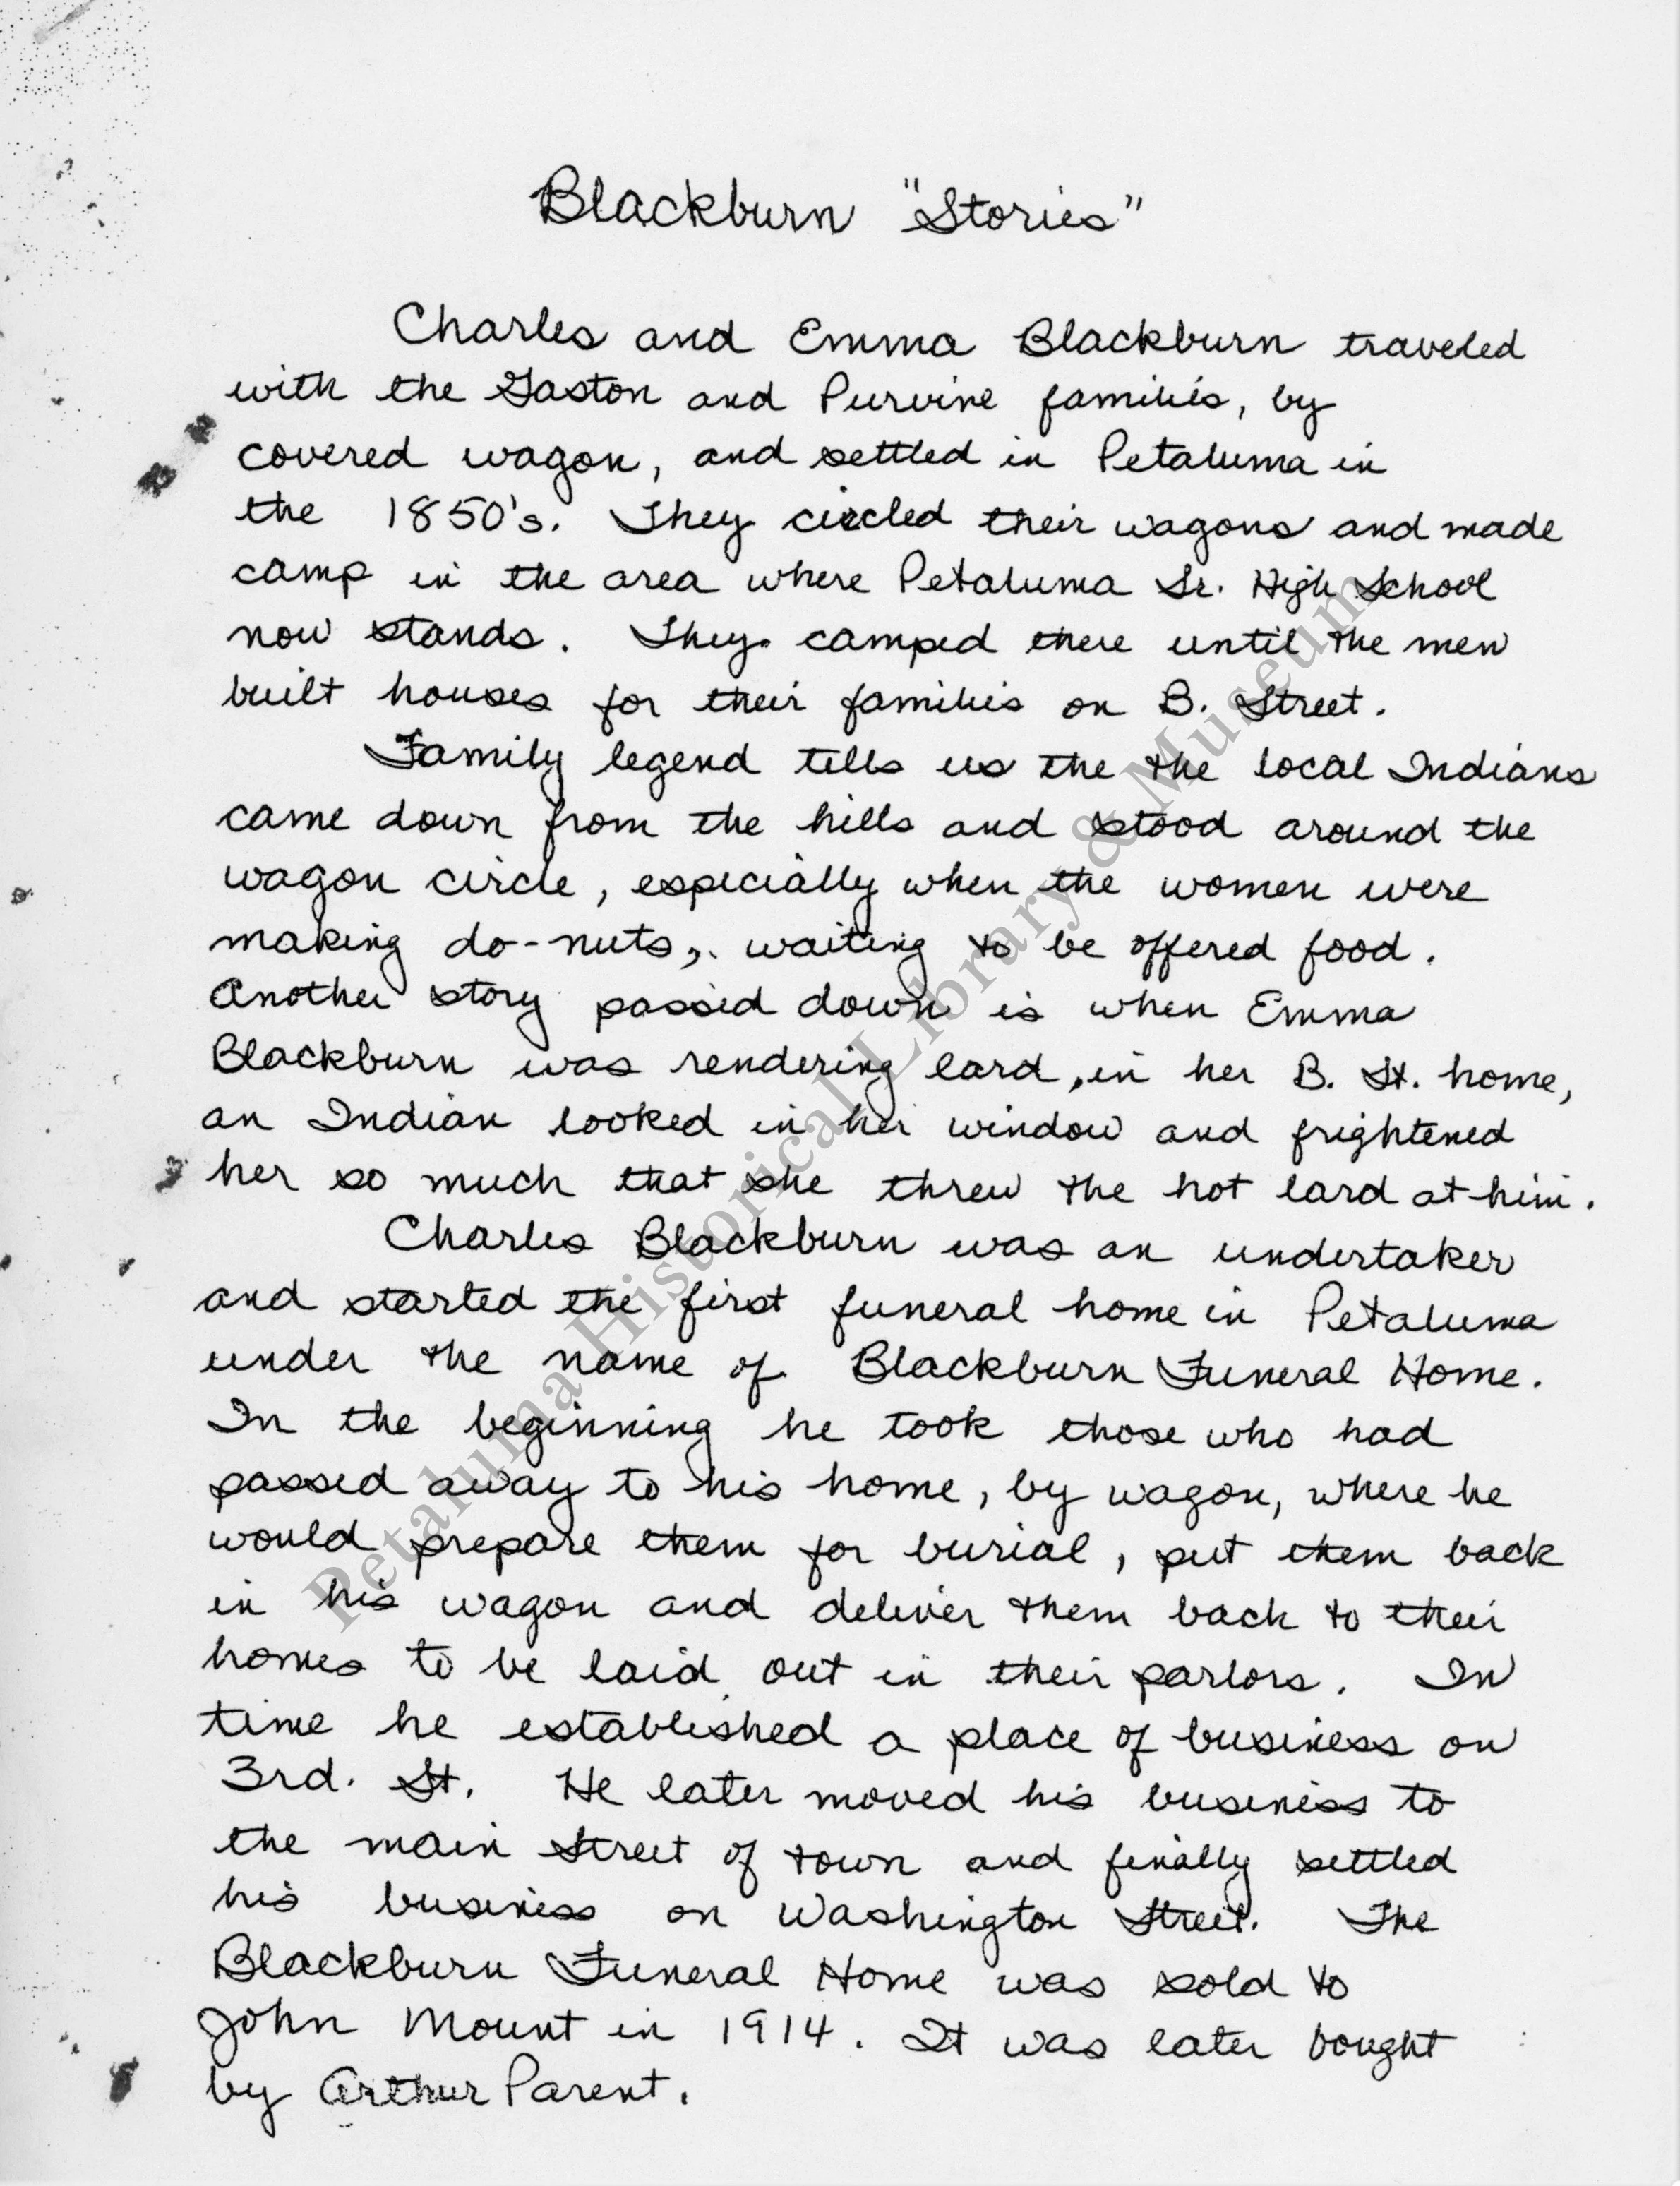 Blackburn "Stories"
Charles and Emma Blackburn traveled
with the Gaston and Purvine families, by
covered wagon, and settled in Petaluma in
the 1850's. They circled their wagons and made
camp in the area where Petaluma Sr. High School
now stands. They camped there until the men
built houses for their families on B. Street.
Family legend tells us the the local Indians
came down from the hills and stood around the
wagon circle, especially when the women were
making do-nuts, waiting to be offered food.
Another story passed down is when Emma
Blackburn was rendering lard, in her B. St. home,
an Indian looked in her window and frightened
her so much that she threw the hot lard at him.
Charles Blackburn was an undertaker
and started the first funeral home in Petaluma
under the name of Blackburn Funeral Home.
In the beginning he took those who had
passed away to his home, by wagon, where he
would prepare them for burial, put them back
in his wagon and deliver them back to their
homes to be laid out in their parlors. In
time he established a place of business on
3rd. St. He later moved his business to
the main street of town and finally settled
his business on Washington Street. The
Blackburn Funeral Home was sold to
John Mount in 1914. It was later bought
by Arthur Parent.
Petaluma Historical Library & Museum